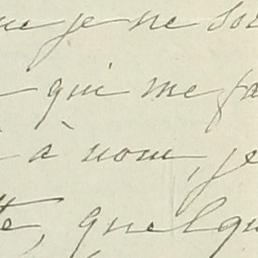 que je ne so
qui me fa
à nom, je
te, quelqu